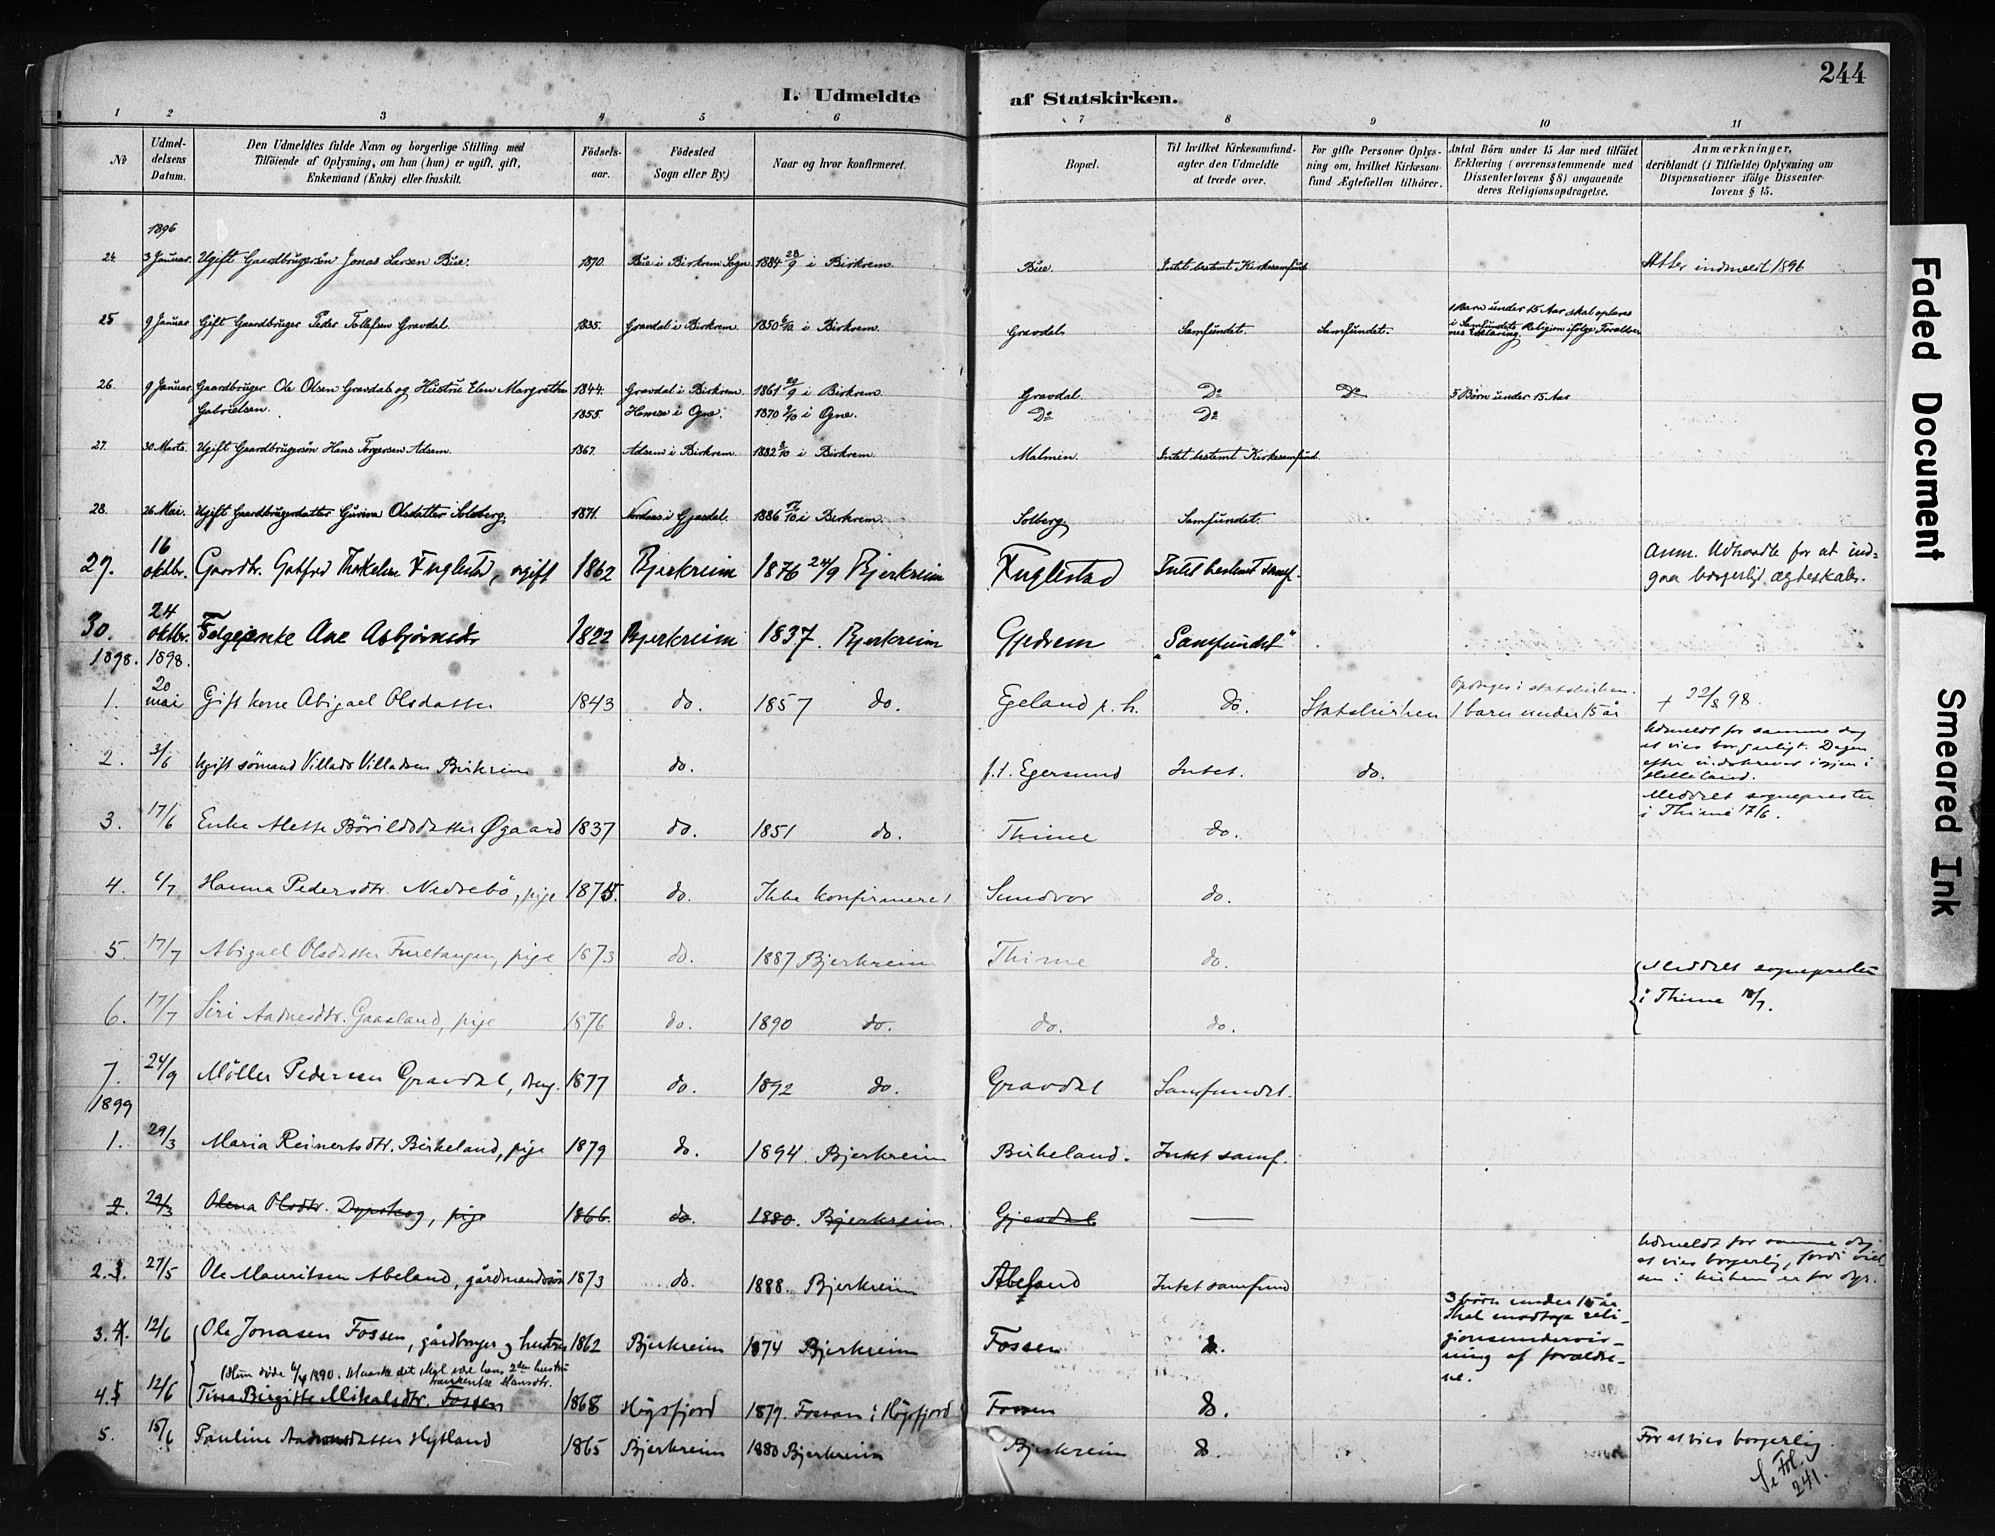 244
I. Udmeldte af Statskirken.
1 2 3 4 5 6 7 8 9 10 11
No
Udmel-
delsens
Datum.
Den Udmeldtes fulde Navn og borgerlige Stilling med
Tilföiende af Oplysning, om han (hun) er ugift, gift,
Enkemand (Enke) eller fraskilt.
Födsels-
aar.
Födested
Sogn eller By.)
Naar og hvor konfirmeret.
Bopæl.
Til hvilket Kirkesamfund-
agter den Udmeldte
at træde over.
For gifte Personer Oplys-
ning om, hvilket Kirkesam-
fund Ægtefællen tilhörer.
Antal Börn under 15 Aar med tilföiet
Erklæring (overensstemmende med
Dissenterlovens § 8) angaaende
deres Religionsopdragelse.
Anmærkninger,
deriblandt (i Tilfælde) Oplysning om
Dispensationer ifölge Dissenter-
lovens § 15.
1896
24. 3 Januar. Ugift Gaardbrugersön Jonas Larsen Bue. 1870. Bue i Birkrem Sogn 1884 28/9 i Birkrem. Bue. Intet bestemt Kirkesamfund Atter indmeldt 1896
25 9 Januar Gift Gaardbruger Peder Tollefsen Gravdal. 1835. Gravdal i Birkrem. 1850 6/10 i Birkrem. Gravdal. Samfundet. Samfundet.
1 Barn under 15 Aar skal opläres
i Samfundets Religion ifölge Forældre-
nes Erklæring.
26. 9 Januar. Gaardbruger Ole Olsen Gravdal og Hustru Elen Margrethe 1844. Gravdal i Birkrem. 1861 29/9 i Birkrem. Gravdal. Do Do 5 Börn under 15 Aar
Gabrielsen. 1855. i Ogne. 1870 2/10 i Ogne. Do Do
27. 30 Marts. Ugift Gaardbrugersön Hans Torgersen Adsem. 1867. Adsem i Birkrem. 1882 8/10 i Birkrem. Malmin. Intet bestemt Kirkesamfund
28. 26 Mai. Ugift Gaardbrugerdatter Gurina Olsdatter Solberg. 1871. Nordaas i Gjesdal. 1886 17/10 i Birkrem. Solberg. Samfundet.
29. 16 oktbr. Gaardbr. Gotfred Thorkelsen Fuglestad, ugift 1862 Bjerkreim 1876 24/9 Bjerkreim Fuglestad Intet bestemt samf.
Anm. Udtraadte for at ind=
gaa borgerligt ægteskab.
30. 24 oktbr. Følgeenke Ane Asbjørnsdtr 1822 Bjerkreim 1837. Bjerkreim Gjedrem "Samfundet"
1898. 1898.
1. 20 mai Gift kone Abigael Olsdatter 1843 do. 1857 do. Egeland p. h. do. Statskirken
Opdrages i statskirken.
1 barn under 15 år
+ 22/8 98.
2. 3/6 Ugift sömand Villads Villadsen Birkreim do. f. t. Egersund Intet. do.
Udmeldt for samme dag
at vies borgerligt. Dagen
efter indskrevet igjen i
Helleland.
3. 17/6 Enke Mette Börildsdatter Øgaard 1837 do. 1851 do. Thime do.
Meddelt sognepresten
i Thime 17/6.
4. 6/7 Hanna Pedersdtr. Nedrebö, pige 1875. do. Ikke konfirmeret Sundvor do.
5. 17/7 Abigael Olsdatter Furetangen, pige 1873 do. 1887 Bjerkreim Thime do.
Meddelt sognepresten
i Thime 18/7.
6. 17/7 Siri Aadnesdtr. Gaasland, pige 1876 do. 1890 do. do. do.
7. 24/9 Möller Pedersen Gravdal, dreng. 1877 do. 1892 do. Gravdal Samfundet.
1899
1. 29/3 Maria Reinertsdtr. Birkeland, pige 1879 do. 1894. Bjerkreim Birkeland. Intet samf.
2. 29/3 Olena Olsdtr. Dypskog, pige 1866. do. 1880. Bjerkreim. Gjesdal
2. 3. 27/5 Ole Mauritsen Abeland, gårdmandssön 1873 do. 1888. Bjerkreim Abeland Intet samfund
Udmeldt for samme dag
at vies borgerlig, fordi viel-
sen i kirken er for dyr.
3. 4. 12/6 Ole Jonasen Fossen, gårdbruger og hustru 1862 Bjerkreim 1874 Bjerkreim Fossen do.
3 börn under 15 år
Skal modtage reli-
gionsundervis-
ning af forældre-
ne.
(Hun döde 1890. Maaske det skal være hans 2den hustru
4. 5 12/6 Tina Birgitte Mikalsdtr. Fossen 1868 Högsfjord 1879. Fossan i Högsfjord Fossen do.
5. 15/6 Pauline Aadnesdatter Hytland 1865 Bjerkreim 1880 Bjerkreim Bjerkreim do. For at vies borgerlig.
Se Fol.
241.
Faded Document
Smeared Ink